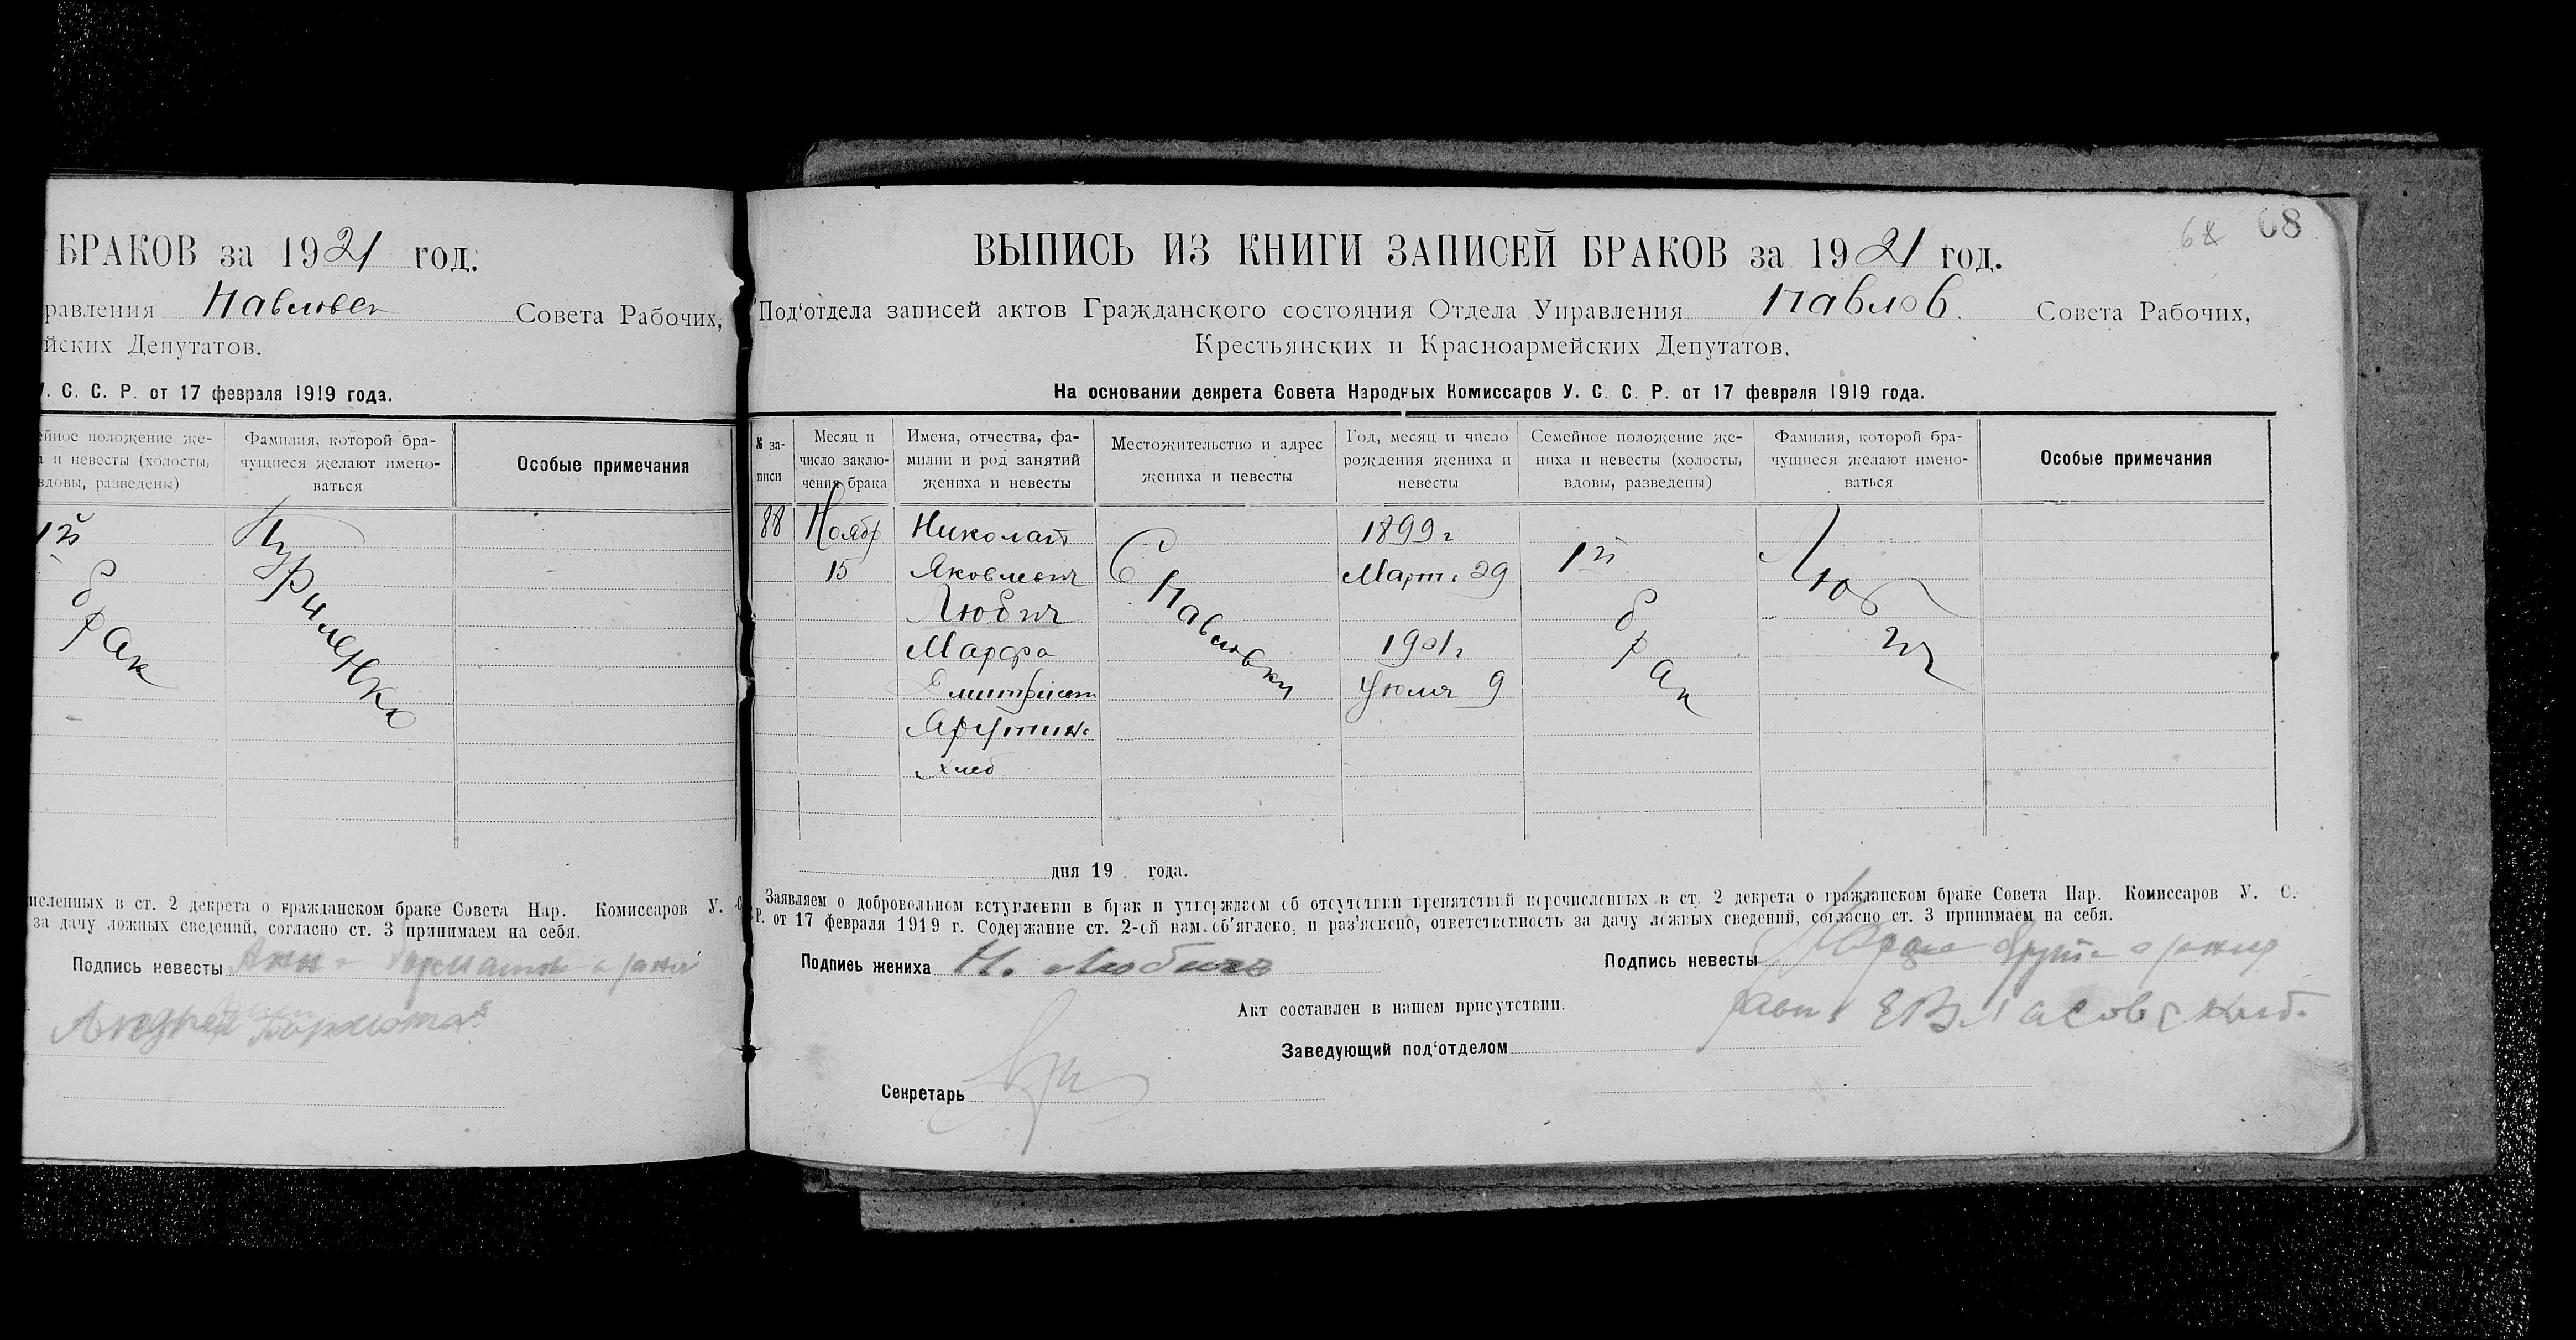 БРАКОВ за 1921 год.
равления Павловск Совета Рабочих,
йских Депутатов.
. С. С. Р. от 17 февраля 1919 года.
ейное положение же-
и невесты (холосты,
вдовы, разведены)
Фамилия, которой бра-
чущиеся желают имено-
ваться
Особые примечания
1й
брак
Куриленко
исленных в ст. 2 декрета о гражданском браке Совета Нар. Комиссаров У. С.
за дачу ложных сведений, согласно ст. 3 принимаем на себя.
Подпись невесты Анна
Андрей
68
ВЫПИСЬ ИЗ КНИГИ ЗАПИСЕЙ БРАКОВ за 1921 год.
Под‘отдела записей актов Гражданского состояния Отдела Управления Павлов. Совета Рабочих,
Крестьянских и Красноармейских Депутатов.
На основании декрета Совета Народных Комиссаров У. С. С. Р. от 17 февраля 1919 года.
№ за-
писи
Месяц и
число заклю-
чения брака
Имена, отчества, фа-
милии и род занятий
жениха и невесты
Местожительство и адрес
жениха и невесты
Год, месяц и число
рождения жениха и
невесты
Семейное положение же-
ниха и невесты (холосты,
вдовы, разведены)
Фамилия, которой бра-
чущиеся желают имено-
ваться
Особые примечания
88
Ноябр
15
Николай
Яковлевич
Любич
Марфа
Дмитриевн
хлеб
С Павловки
1899 г
Март. 29
1901 г
Июля 9
1й
брак
Любич
дня 19 года.
Заявляем о добровольном вступлении в брак и утверждаем об отсутствии препятствий перечисленных в ст. 2 декрета о гражданском браке Совета Нар. Комиссаров У. С.
Р. от 17 февраля 1919 г. Содержание ст. 2-ой нам об’явлено, и раз’яснено, ответственность за дачу ложных сведений, согласно ст. 3 принимаем на себя.
Подпись жениха Н. Любичъ
Подпись невесты
Акт составлен в нашем присутствии.
Заведующий под‘отделом
Секретарь